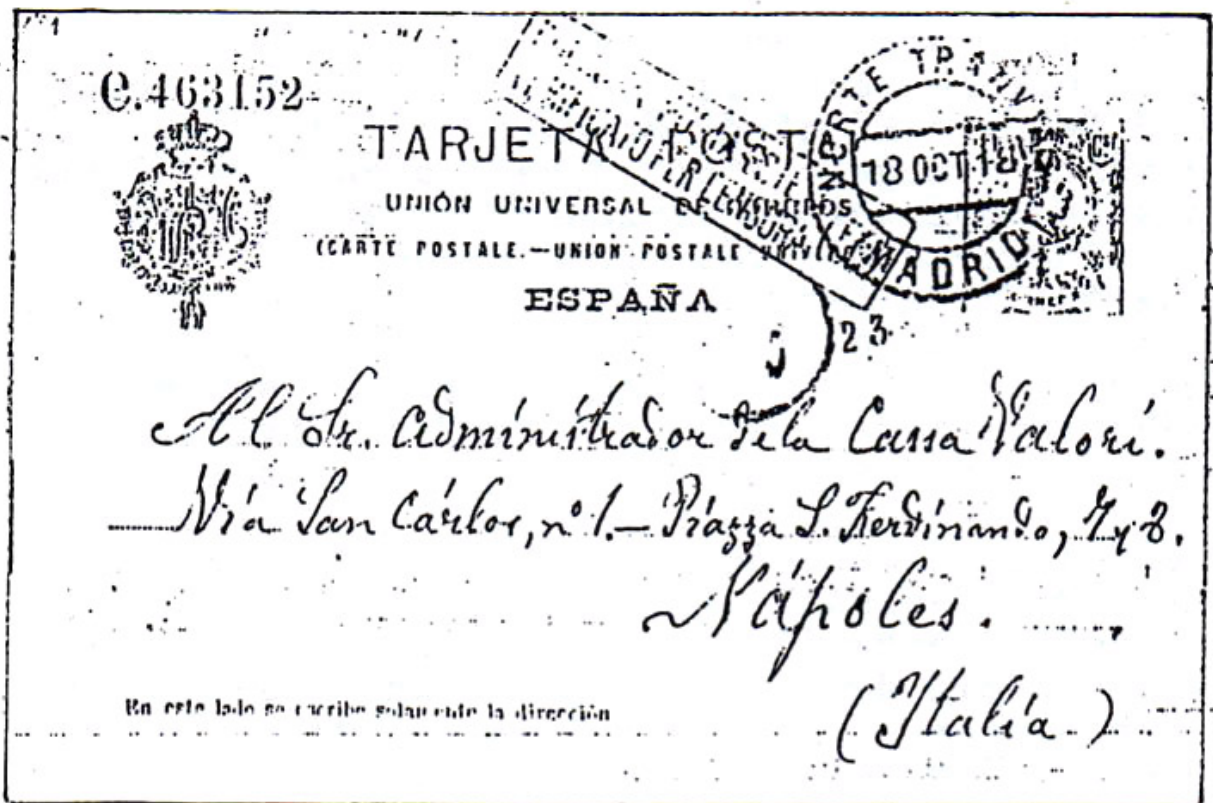 C.463152
TARJETA POST
UNIÓN UNIVERSAL DE CORREOS
(CARTE POSTALE.—UNION POSTALE UNIVERS
ESPAÑA
MADRID
18 OCT 18
23
Al Sr. Administrador de la Cassa Valori.
Vía San Cárlos, nº 1.— Piazza S. Ferdinando, 7 y 8.
Nápoles.
(Italia)
En este lado se escribe solamente la dirección